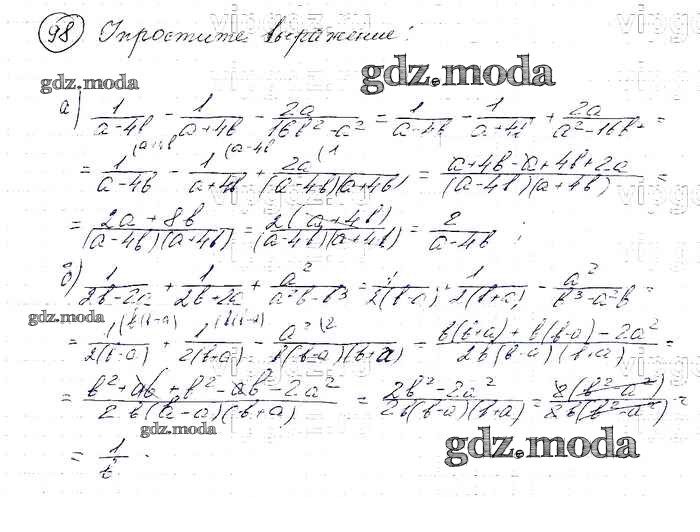 98 Упростите выражение:
gdz.moda
gdz.moda
а) 1/(a-4b) - 1/(a+4b) - 2a/(16b²-a²) = 1/(a-4b) - 1/(a+4b) + 2a/(a²-16b²) =
= 1/(a-4b) (a+4b - 1/(a+4b) (a-4b + 2a/((a-4b)(a+4b)) (1 = (a+4b-a+4b+2a)/((a-4b)(a+4b)) =
= (2a+8b)/((a-4b)(a+4b)) = 2(a+4b)/((a-4b)(a+4b)) = 2/(a-4b) ;
б) 1/(2b-2a) + 1/(2b+2a) + a²/(a²b-b³) = 1/(2(b-a)) + 1/(2(b+a)) - a²/(b³-a²b) =
gdz.moda
= 1/(2(b-a)) + 1/(2(b+a)) - a²/(b(b-a)(b+a)) (2 = (b(b+a)+b(b-a)-2a²)/(2b(b-a)(b+a)) =
= (b²+ab+b²-ab-2a²)/(2b(b-a)(b+a)) = (2b²-2a²)/(2b(b-a)(b+a)) = 2(b²-a²)/(2b(b²-a²)) =
gdz.moda
gdz.moda
= 1/b .